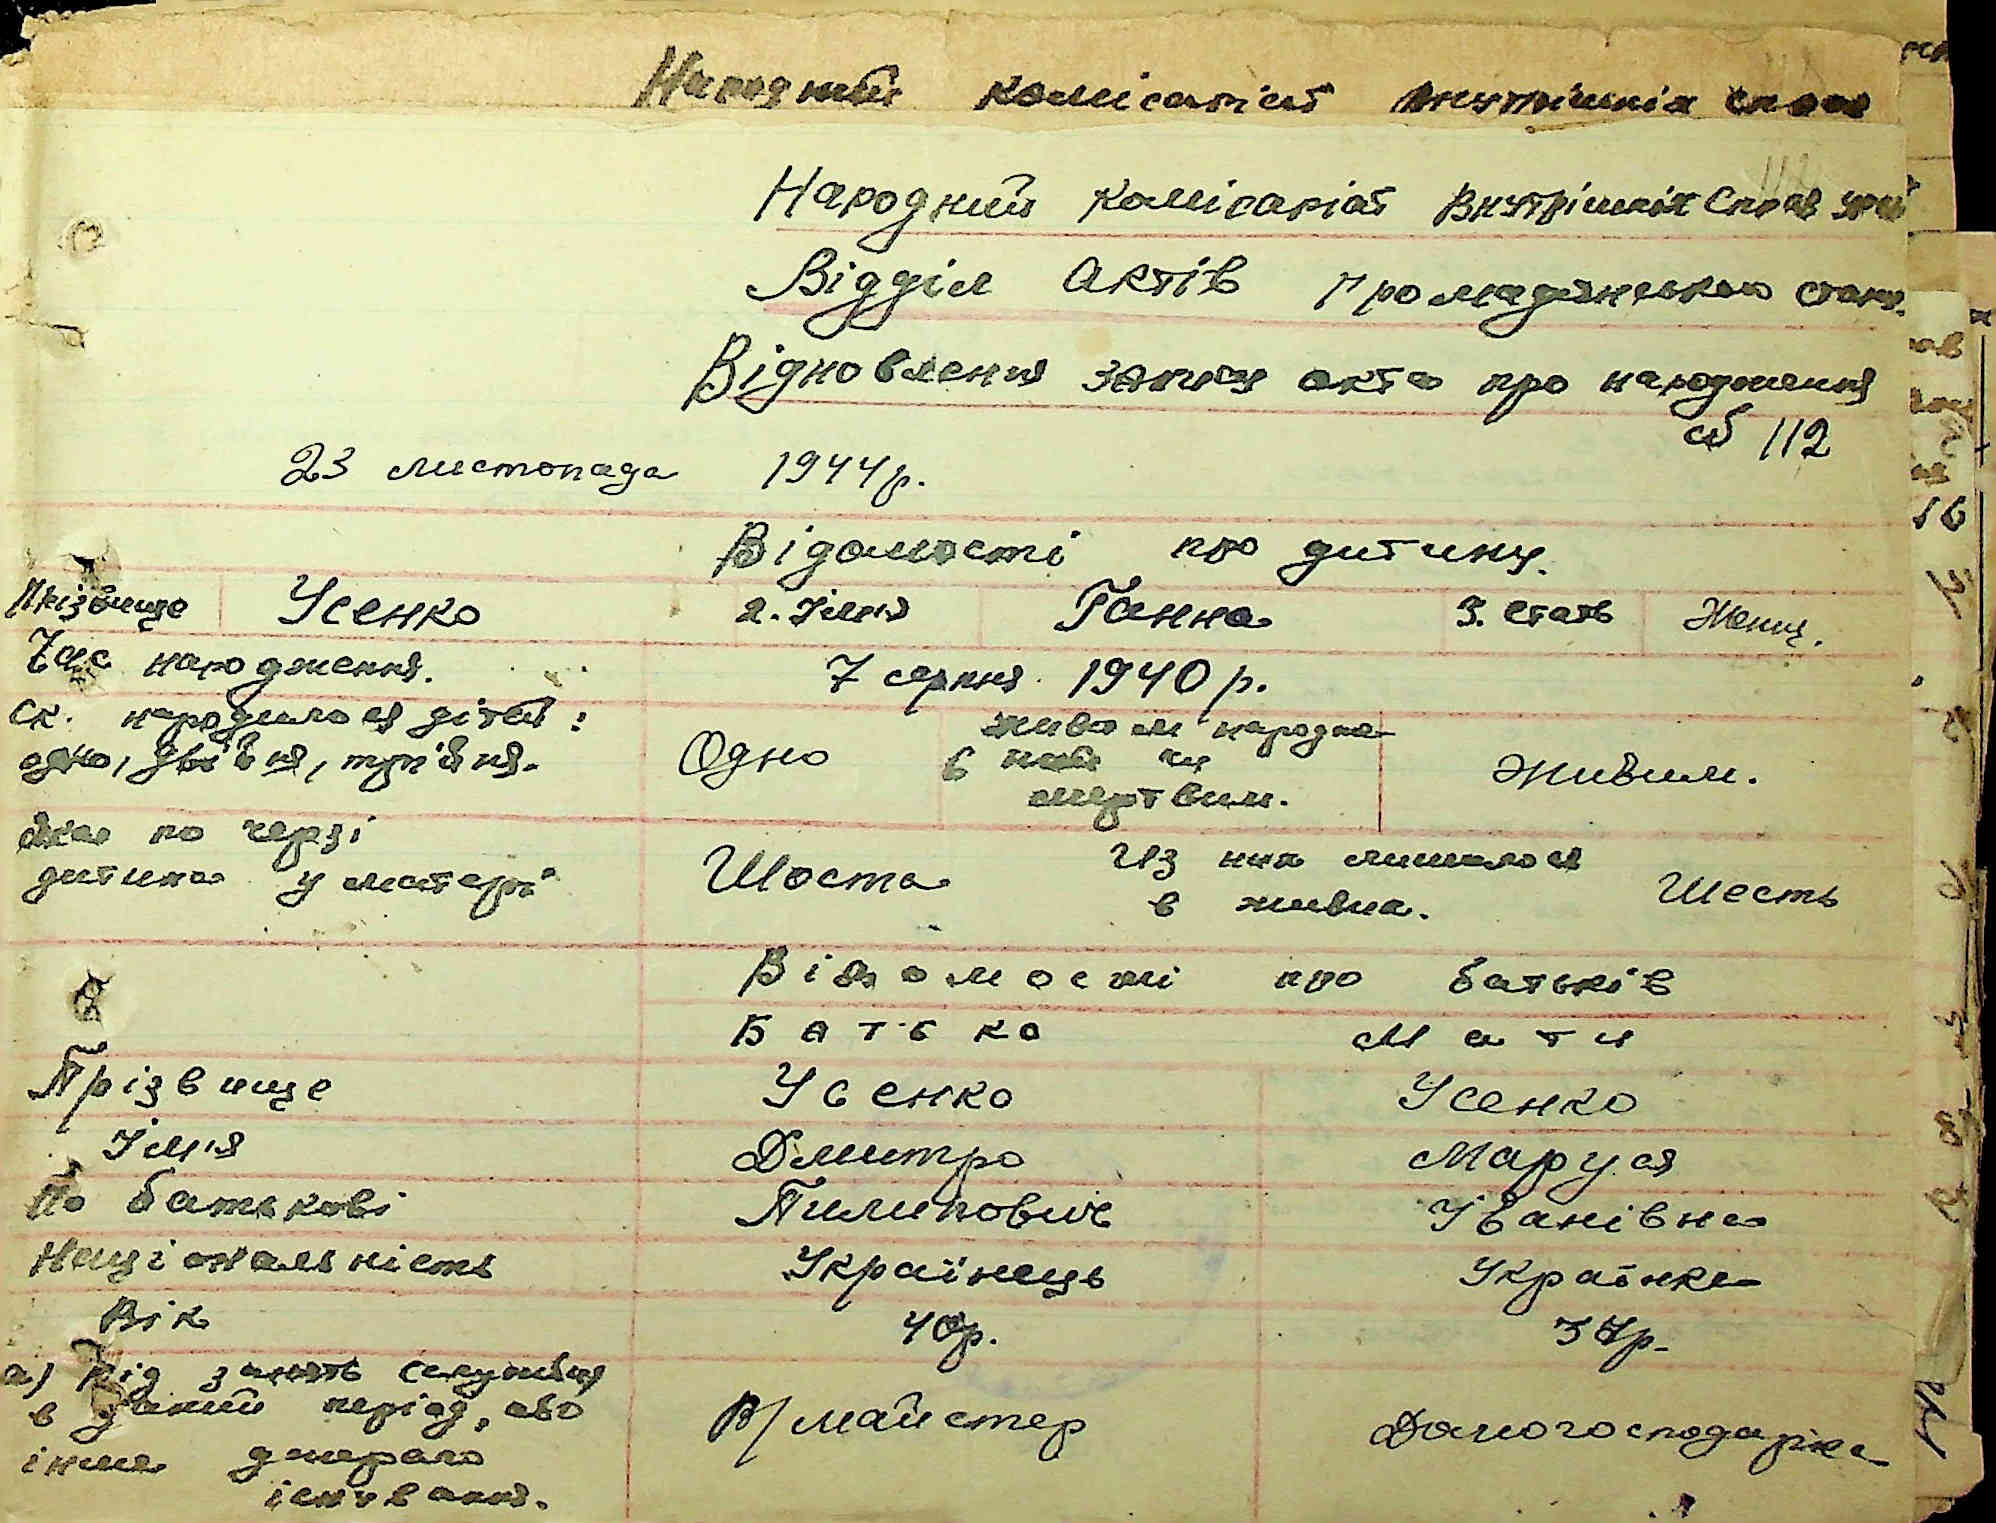 Народний комісаріат внутрішніх справ
Народний комісаріат Внутрішніх Справ УРСР
Відділ Актів Громадянського стану.
Відновлення запису акта про народження
№ 112
23 листопада 1944 р.
Відомості про дитину.
Прізвище Усенко 2. Імня Ганна 3. Стать Женщ.
Час народження. 7 серпня 1940 р.
Ск. народилося дітей: живом народже
одно, двійня, трійня. Одно в чи Живим.
мертвим.
яка по черзі Из них лишилося
дитина у матері Шоста в живих. Шесть
Відомості про батьків
Батько Мати
Прізвище Усенко Усенко
Імня Дмитро Маруся
По батькові Пилипович Іванівна
Національність Українець Українка
Вік 40р. 37р.
а) Рід занять службця
в даний період, або В/майстер Домогосподарка
інше джерело
існування.